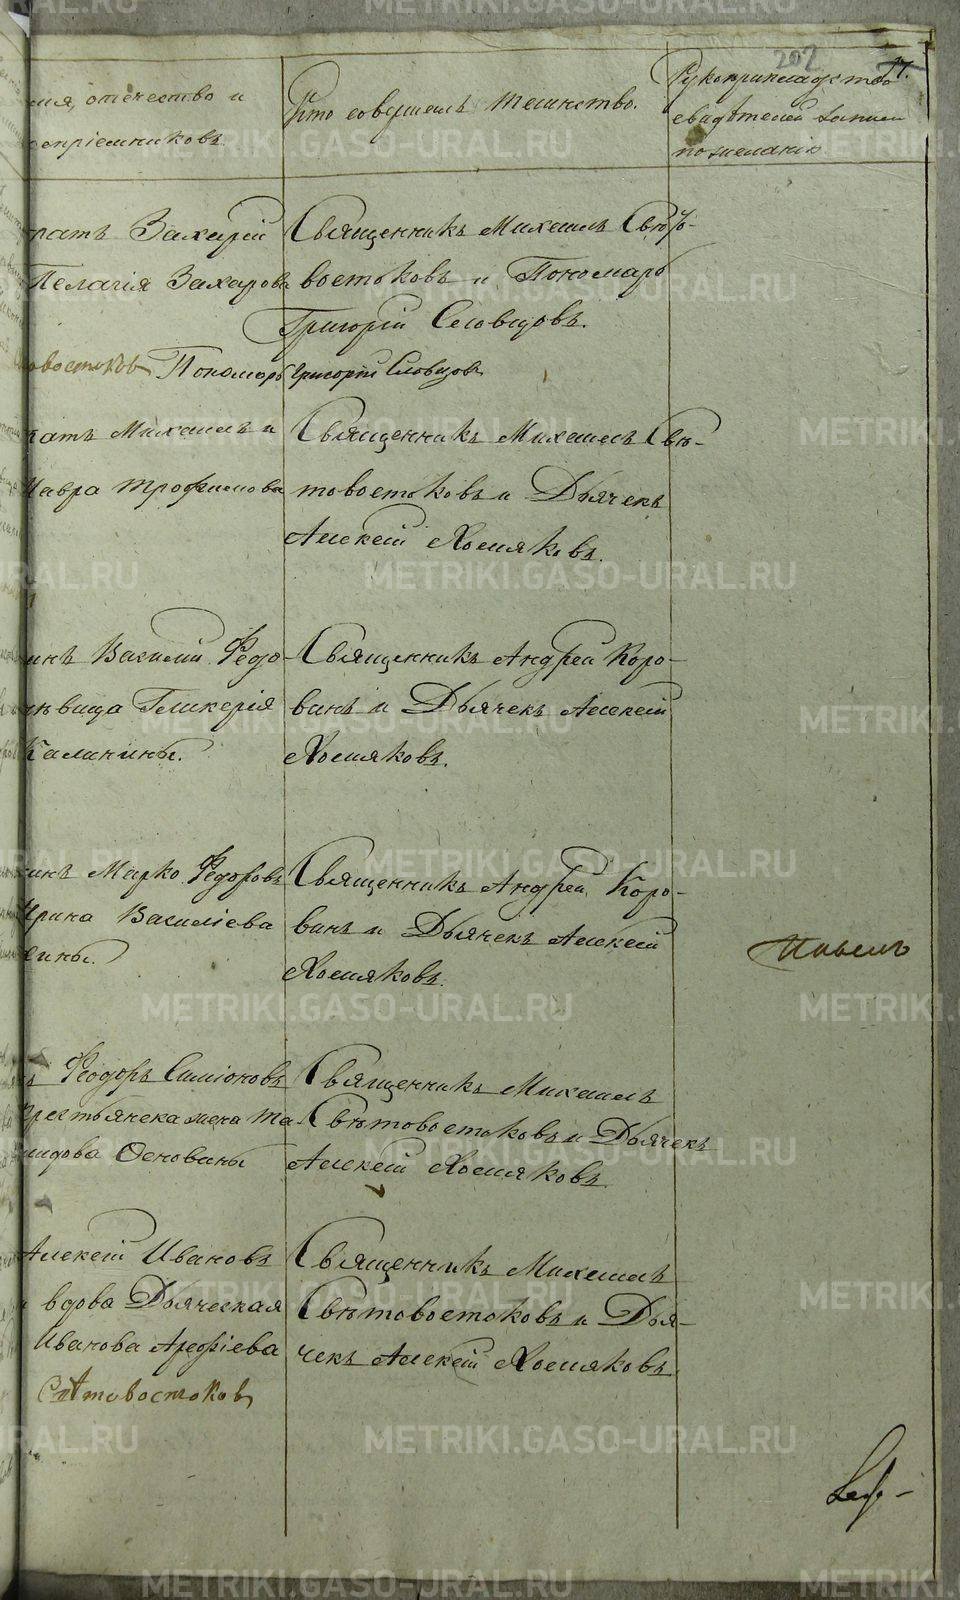 207
17.
имя, отечество и
воспріемниковъ.
Кто совершалъ таинство.
Рукоприкладство
свидѣтелей записи
по желанію
братъ Захарій
Пелагія Захарова
Священникъ Михаилъ Свѣто-
востоковъ и Пономарь
Григорій Словцовъ.
товостоковъ Пономарь Григорій Словцовъ
Михаилъ и
Мавра Трофимова
Священникъ Михаилъ Свѣ-
товостоковъ и Дьячекъ
Алексій Хомяковъ.
Василій Федо-
дѣвица Гликерія
Калинины.
Священникъ Андрей Коро-
винъ и Дьячекъ Алексій
Хомяковъ.
Марко Федоровъ
Ирина Васильева
Священникъ Андрей Коро-
винъ и Дьячекъ Алексій
Хомяковъ.
Феодоръ Симіоновъ
Крестьянска жена Та-
мидова Основины
Священникъ Михаилъ
Свѣтовостоковъ и Дьячекъ
Алексій Хомяковъ.
Алексій Ивановъ
вдова Дьяческая
Иванова Арефіева
Свѣтовостоковъ
Священникъ Михаилъ
Свѣтовостоковъ и Дья-
чекъ Алексій Хомяковъ.
METRIKI.GASO-URAL.RU